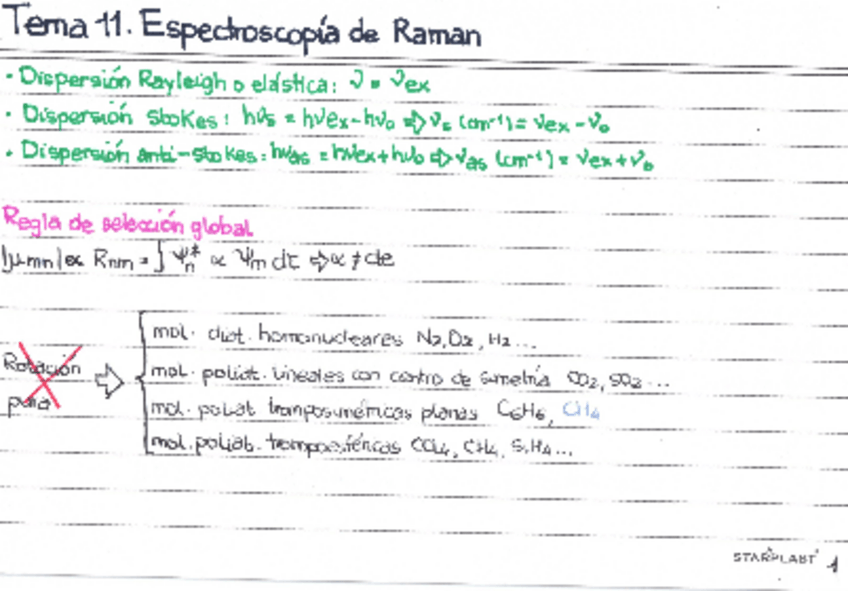 Tema 11. Espectroscopía de Raman
· Dispersión Rayleigh o elástica: ν = νex
· Dispersión Stokes: hνs = hνex - hνo ⇒ νs (cm⁻¹) = νex - νo
· Dispersión anti-stokes: hνas = hνex + hνo ⇒ νas (cm⁻¹) = νex + νo
Regla de selección global
|μmn| ∝ Rnm = ∫ Ψn* α Ψm dτ ⇒ α ≠ cte
mol. diat. homonucleares N2, O2, H2...
Rotación
mol. poliat. lineales con centro de simetría CO2, SO2...
pura
mol. poliat. tromposimétricas planas C6H6, CH4
mol. poliat. trompoesféricas CCl4, CH4, SiH4...
STARPLAST 1